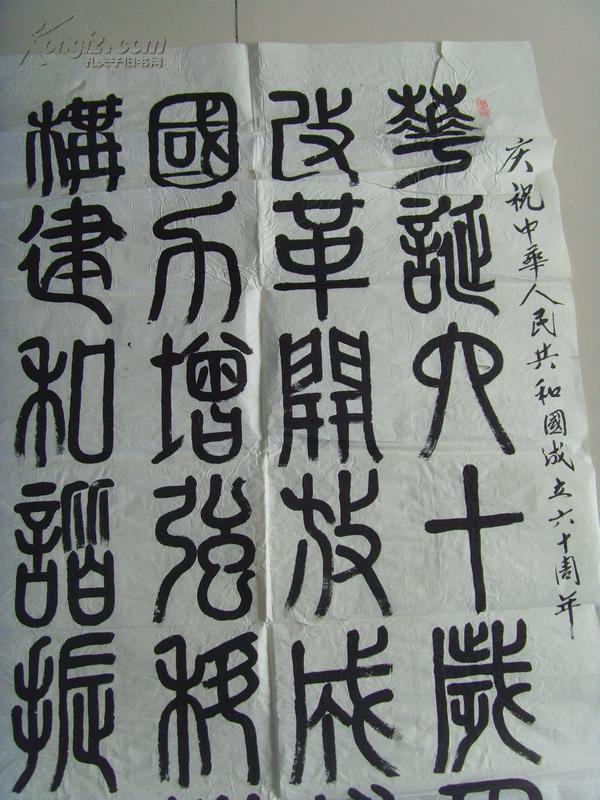 庆祝中華人民共和國成立六十周年
華誕六十歲
改革開放成
國力增強移
構建和諧振
Kongfz.com
孔夫子旧书网